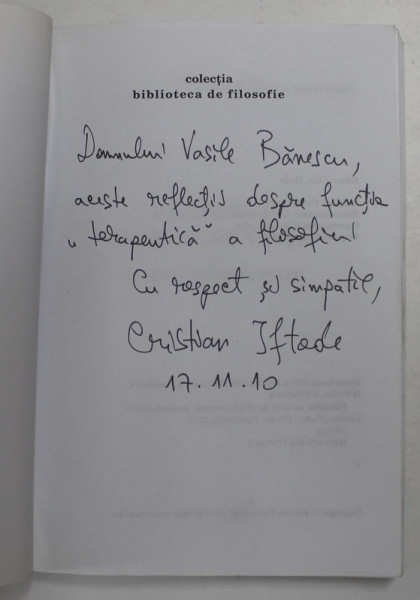 colecția
biblioteca de filosofie
Domnului Vasile Bănescu,
aceste reflecții despre funcția
„terapeutică" a filosofiei
Cu respect și simpatie,
Cristian Iftode
17.11.10